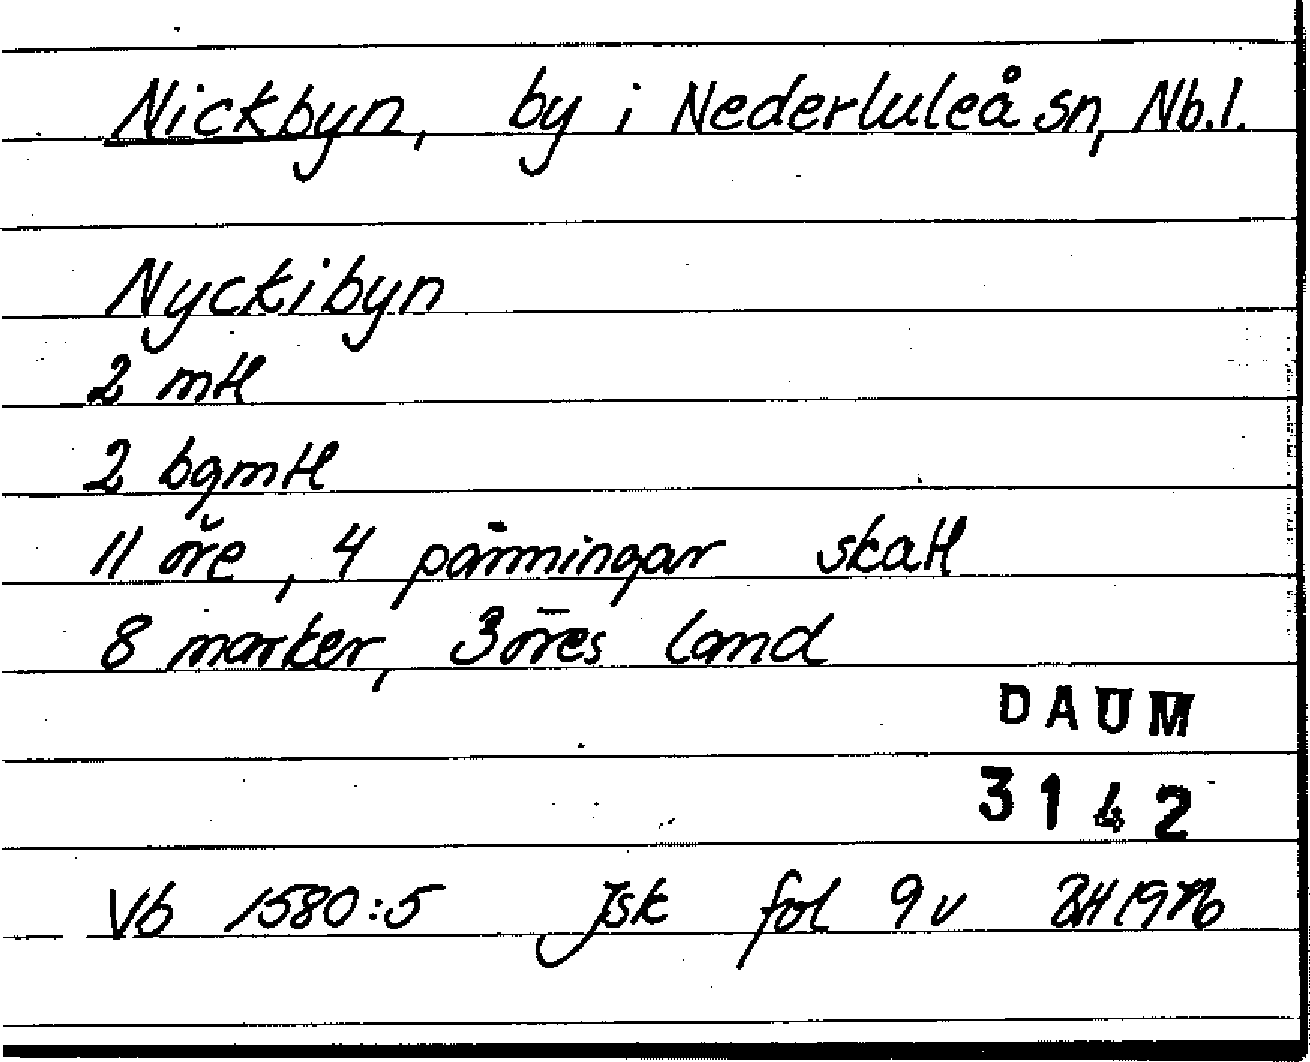 Nickbyn, by i Nederluleå sn, Nb.l.
Nyckibyn
2 mtl
2 bgmtl
11 öre, 4 pänningar skatt
8 marker, 3 öres land
DAUM
3142
Vb 1580:5 Jsk fol 9v 1976